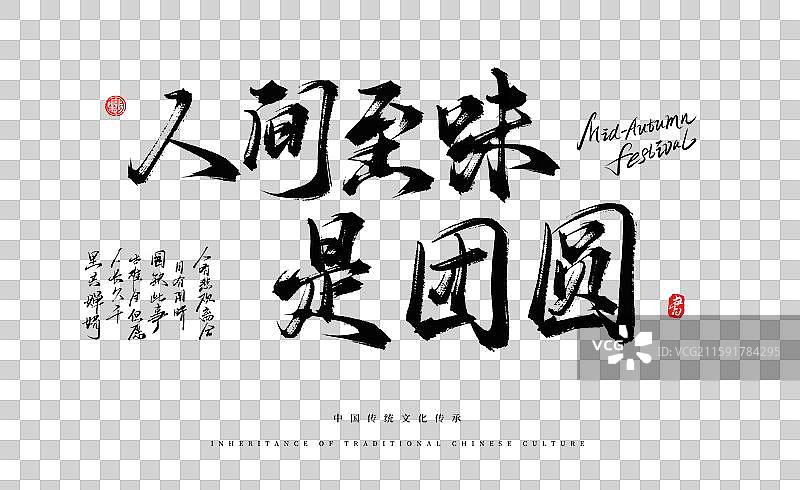 人间至味
Mid-Autumn
Festival
是团圆
人有悲欢离合
月有阴晴
圆缺此事
古难全但愿
人长久千
里共婵娟
VCG
VCG211591784295
中国传统文化传承
INHERITANCE OF TRADITIONAL CHINESE CULTURE